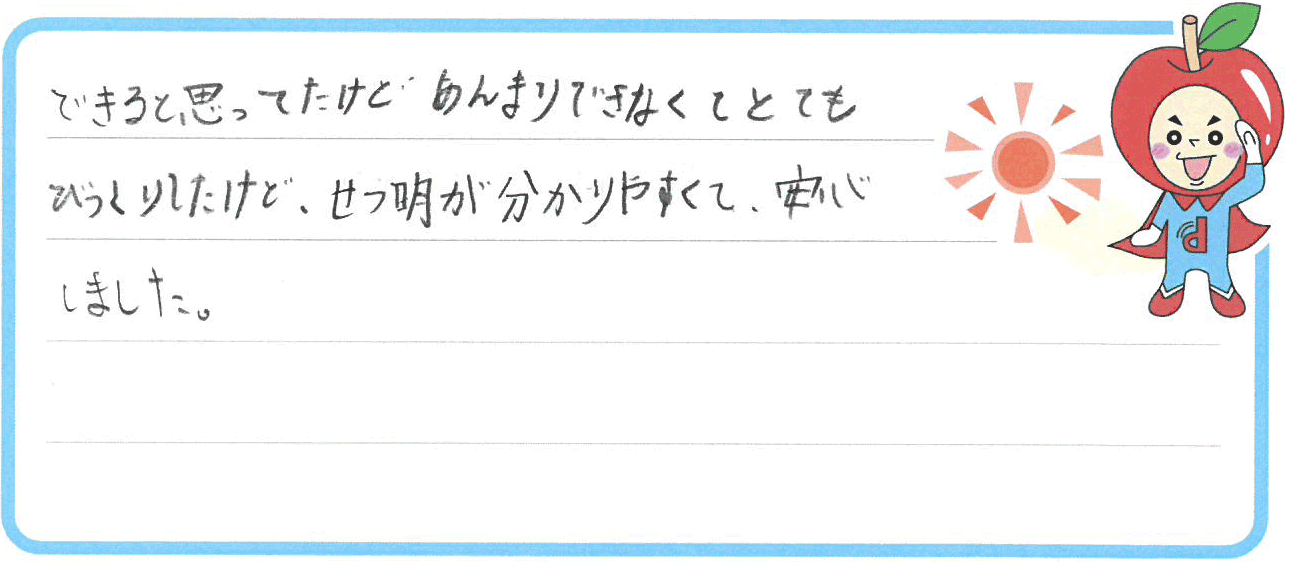 できると思ってたけどあんまりできなくてとても
びっくりしたけど、せつ明が分かりやすくて、安心
しました。